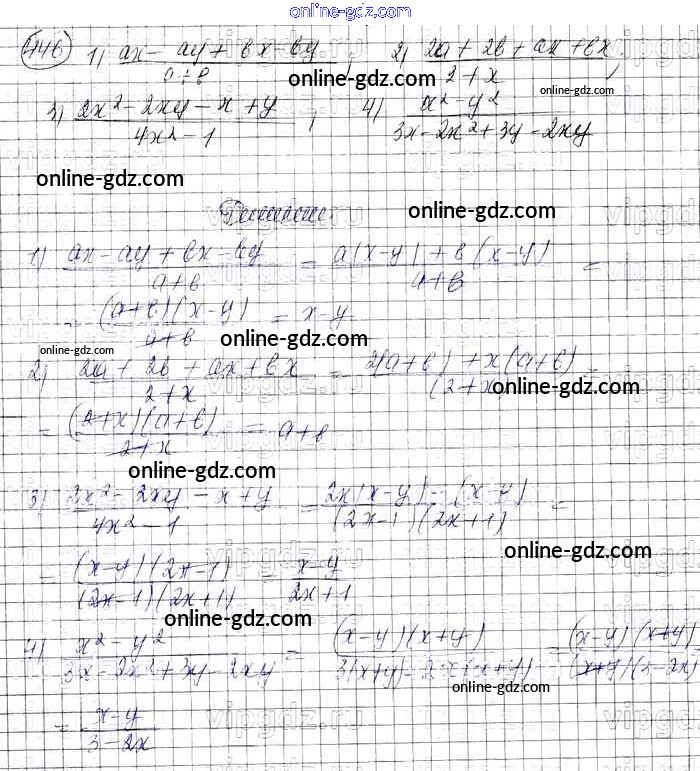 online-gdz.com
446 1) (ax - ay + bx - by)/(a + b); 2) (2a + 2b + ax + bx)/(2 + x);
online-gdz.com online-gdz.com
3) (2x² - 2xy - x + y)/(4x² - 1); 4) (x² - y²)/(3x - 2x² + 3y - 2xy)
online-gdz.com
Решение. online-gdz.com
1) (ax - ay + bx - by)/(a + b) = (a(x - y) + b(x - y))/(a + b) =
= ((a + b)(x - y))/(a + b) = x - y
online-gdz.com
online-gdz.com
2) (2a + 2b + ax + bx)/(2 + x) = (2(a + b) + x(a + b))/(2 + x =
online-gdz.com
= ((2 + x)(a + b))/(2 + x) = a + b
online-gdz.com
3) (2x² - 2xy - x + y)/(4x² - 1) = (2x(x - y) - (x - y))/((2x - 1)(2x + 1)) =
online-gdz.com
= ((x - y)(2x - 1))/((2x - 1)(2x + 1)) = (x - y)/(2x + 1)
online-gdz.com
4) (x² - y²)/(3x - 2x² + 3y - 2xy) = ((x - y)(x + y))/(3(x + y) - 2x(x + y)) = ((x - y)(x + y))/((x + y)(3 - 2x)
online-gdz.com
= (x - y)/(3 - 2x)